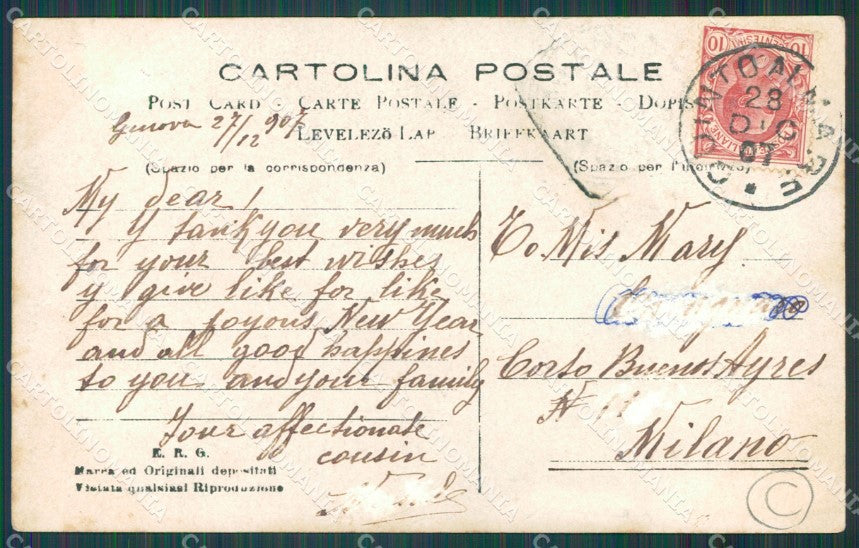 CARTOLINA POSTALE
POST CARD - CARTE POSTALE - POSTKARTE - DOPIS
LEVELEZÖ LAP BRIEFKAART
Genova 27/12 907
(Spazio per la corrispondenza)
(Spazio per l'
10 10
QUINTO AL MARE
28
DIC
07
My dear!
Y tank you very much
for your best wishes
y give like for like
for a joyous New Year
and all good happines
to you and your family
Your affectionate
cousin
To Mis Mary
Corso Buenos Ayres
N
Milano
E. R. G.
Marca ed Originali depositati
Vietata qualsiasi Riproduzione
C
CARTOLINOMANIA